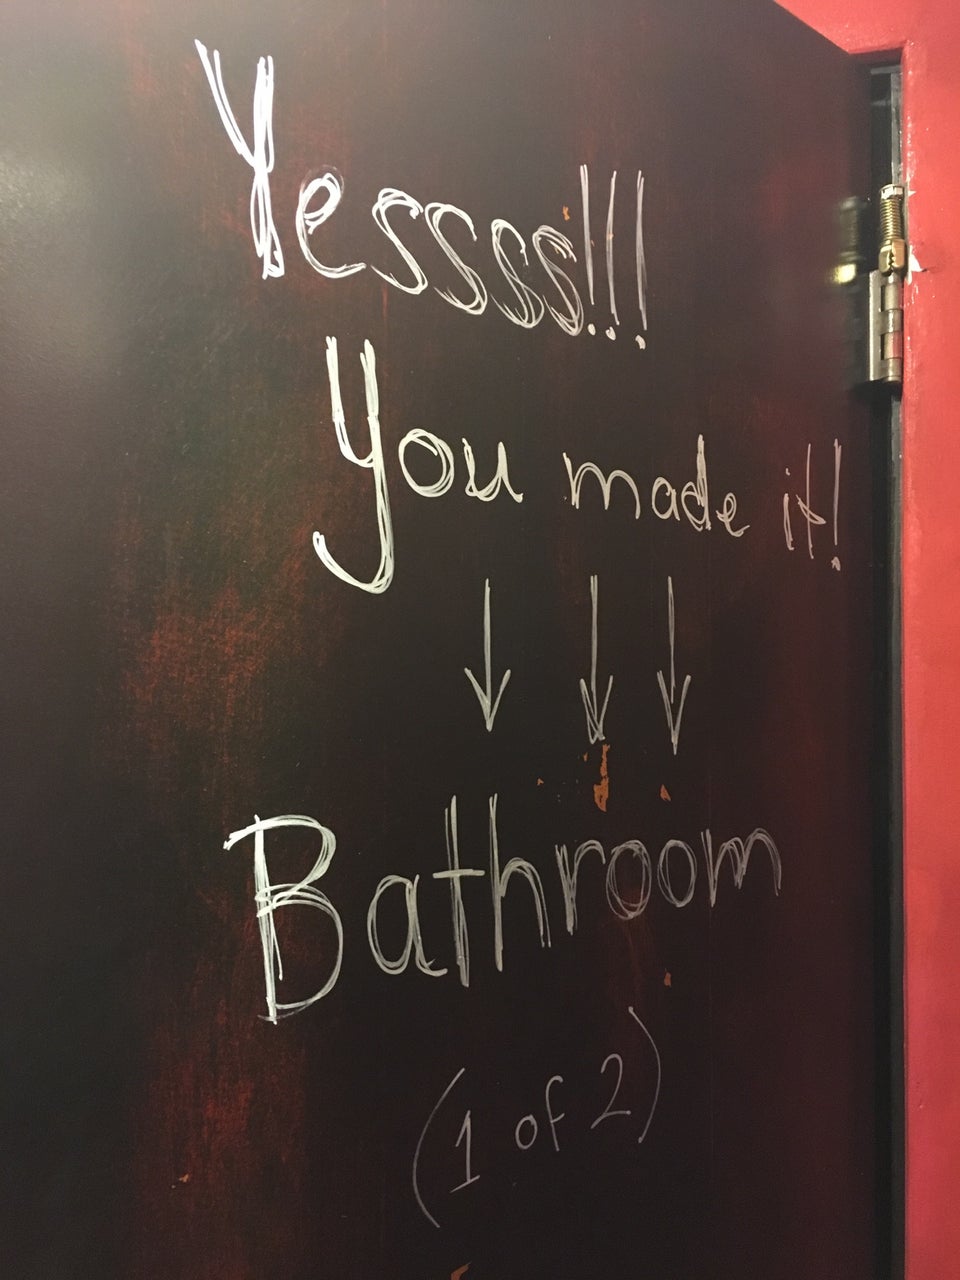 Yessss!!!
You made it!
↓ ↓ ↓
Bathroom
(1 of 2)